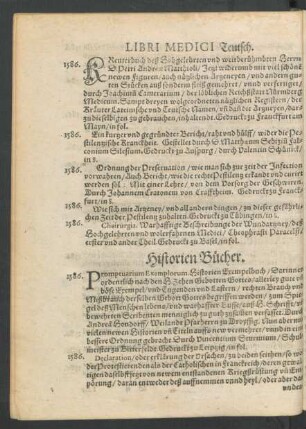 LIBRI MEDICI Teutsch.
1586. KReutterbuch deß Hochgelehrten vnd weitberühmbten Herrn
D. Petri Andreæ Matthioli, Jetzt widerumb mit viel schönen
newen Figuren, auch nützlichen Artzneyen, vnd andern guten
Stücken auß sondern fleiß gemehret, vnd verfertiget,
durch Joachimum Camerarium, der löblichen Reichsstatt Nürnberg
Medicum, Sampt dreyen wolgeordneten nützlichen Registern, der
Kräuter Lateinische vnd Teutsche Namen, vnd dann die Artzneyen, darzu
dieselbigen zu gebrauchen, inhaltendt. Gedruckt zu Franckfurt am
Mayn, in fol.
1586. Ein kurtzer vnd gegründter Bericht, raht vnd hülff, wider die Pestilentzische
Kranckheit. Gestellet durch
Gedruckt zu Augspurg, durch Valentin Schönick,
in 8.
1586. Ordnung der Preseruation, wie man sich zur zeit der Infection
verwahren, Auch Bericht, wie die rechte Pestilentz erkandt vnd curiert
werden sol. Mit einer Lehre, von dem
Durch Johannem Cratonem von Crafftheim. Gedruckt zu Franckfurt,
in 8.
1586. Wie sich mit Artzney, vnd all andern dingen, zu dieser gefährlichen
Zeit der Pestilentz zuhalten. Gedruckt zu Tübingen, in 8.
Chirurgia. Warhafftige Beschreibunge der Wundartzney, deß
Hochgelehrten vnd wolerfahrnen Medici, Theophrasti Paracelsi,
erster vnd ander Theil. Gedruckt zu Basel, in fol.
Historien Bücher.
1586. PRomptuarium Exemplorum. Historien vnd Exempelbuch, Darinnen
ordentlich nach den H. Zehen Gebotten Gottes, allerley gute vnd
böse Exempel, von Tugenden vnd Lastern, rechten Brauch vnd
Mißbrauch der selben Gebott Gottes begriffen werden, zum Spiegel
deß Menschen lebens, auß warhafften Historien H. Schrifft, vnd
bewehrten Scribenten menniglich zu gute zusamen verfasset. Durch
Andream Hondorff, Weilandt Pfarherrn zu Droyssig. Nun aber
mit vielen newen Historien vnd vermehret, vnd in ein besondere
Ordnung gebracht Durch Vincentium Sturmium, Schulmeister
zu Bitterfeldt. Gedruckt zu Leipzig, in fol.
1586. Declaration, oder erklärung der Vrsachen, zu beiden seiten, so wol
die Protestierenden als der Catholischen in Franckreich, deren
Kriegßrüstung vnd Empörung,
daran entweder deß auffnemmen vnnd heyl, oder aber das
vnder-